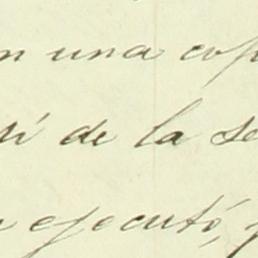 n una cop
si de la se
ejecutó,